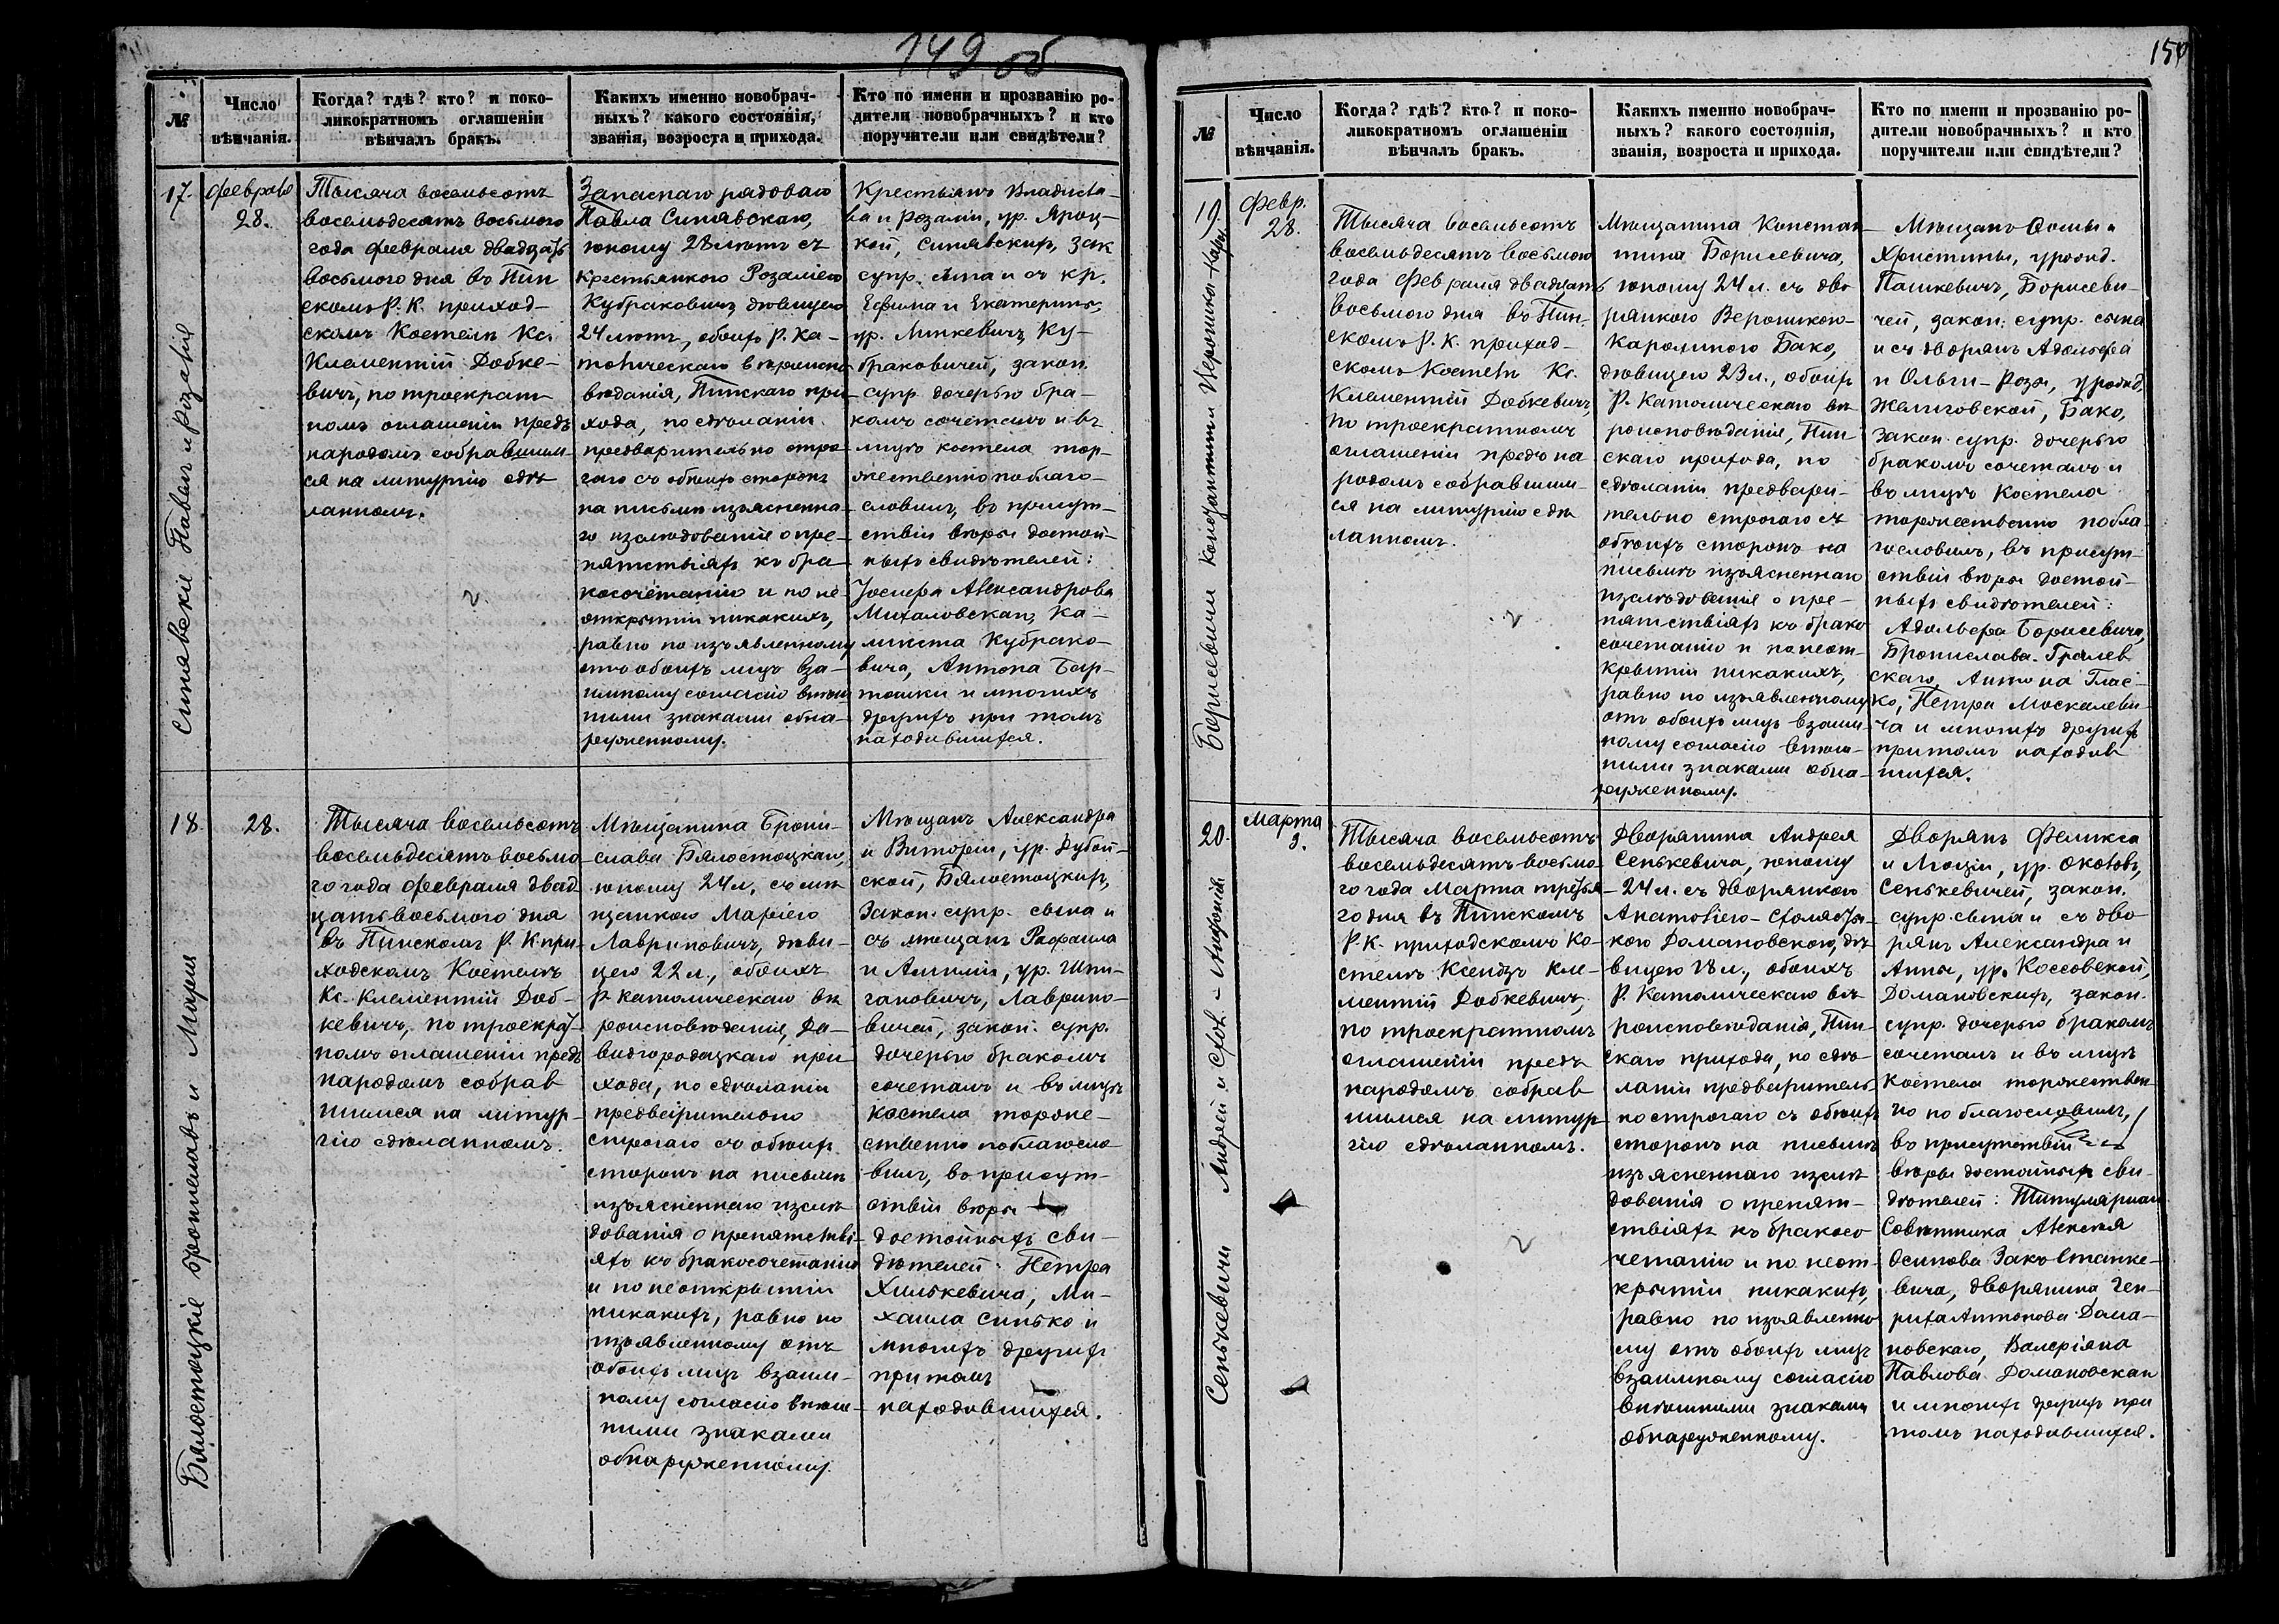 149 об
150
№
Число
вѣнчанія.
Когда? гдѣ? кто? и поко-
ликократномъ оглашеніи
вѣнчалъ бракъ.
Какихъ именно новобрач-
ныхъ? какого состоянія,
званія, возроста и прихода.
Кто по имени и прозванію ро-
дители новобрачныхъ? и кто
поручители или свидѣтели?
17.
Синявскіе Павелъ и Розалія
Февраля
28.
Тысяча восемьсотъ
восемьдесятъ восьмого
года Февраля двадцать
восьмого дня въ Пин
скомъ Р. К. приход-
скомъ Костелѣ Кс.
Климентій Добке-
вичъ, по троекрат
номъ оглашеніи предъ
народомъ собравшим-
ся на литургію сдѣ
ланномъ.
Запаснаго рядоваго
Павла Синявскаго,
юношу 28 лѣтъ съ
крестьянкою Розаліею
Кубраковичъ, дѣвицею
24 лѣтъ, обоихъ Р. Ка-
толическаго вѣроиспо
вѣданія, Пинскаго при
хода, по сдѣланіи
предварительно стро-
гаго съ обоихъ сторонъ
на письмѣ изъясненна-
го изслѣдованія о пре-
пятствіяхъ къ бра-
косочетанію и по не
открытіи никакихъ,
равно по изъявленному
отъ обоихъ лицъ вза-
имному согласію внѣш
ними знаками обна-
руженному.
Крестьянъ Владисла-
ва и Розаліи, ур. Яроц-
кой, Синявскихъ, зак
супр. сына и съ кр.
Ефима и Екатерины,
ур. Минкевичъ, Ку-
браковичей, закон.
супр. дочерью бра-
комъ сочеталъ и въ
лицѣ костела тор-
жественно поблаго-
словилъ, въ присут-
ствіи вѣры достой-
ныхъ свидѣтелей:
Іосифа Александрова
Михаловскаго, Ка-
ликста Кубрако-
вича, Антона Бар-
тошки и многихъ
другихъ при томъ
находившихся.
18.
Бялостоцкіе Брониславъ и Марія
28.
Тысяча восемьсотъ
восемьдесятъ восьмо
го года Февраля двад
цать восьмого дня
въ Пинскомъ Р. К при
ходскомъ Костелѣ
Кс. Климентій Доб-
кевичъ, по троекрат-
номъ оглашеніи предъ
народомъ собрав
шимся на литур-
гію сдѣланномъ.
Мѣщанина Брони-
слава Бялостоцкаго,
юношу 24 л. съ мѣ
щанкою Маріею
Лавриновичъ, дѣви-
цею 22 л., обоихъ
Р. католическаго вѣ
роисповѣданія, Да-
видгородоцкаго при
хода, по сдѣланіи
предварительно
строгаго съ обоихъ
сторонъ на письмѣ
изъясненнаго изслѣ
дованія о препятстві-
яхъ къ бракосочетанію
и по неоткрытіи
никакихъ, равно по
изъявленному отъ
обоихъ лицъ взаим-
ному согласію внѣш-
ними знаками
обнаруженному.
Мѣщанъ Александра
и Викторіи, ур. Дубой-
ской, Бялостоцкихъ,
Закон. супр. сына и
съ мѣщанъ Рафаила
и Амиліи, ур. Шпи-
гановичъ, Лаврино-
вичей, закон. супр.
дочерью бракомъ
сочеталъ и въ лицѣ
костела торже-
ственно поблагосло-
вилъ, въ присут-
ствіи вѣры
достойныхъ сви-
дѣтелей: Петра
Хилькевича, Ми-
хаила Синько и
многихъ другихъ
при томъ
находившихся.
№
Число
вѣнчанія.
Когда? гдѣ? кто? и поко-
ликократномъ оглашеніи
вѣнчалъ бракъ.
Какихъ именно новобрач-
ныхъ? какого состоянія,
званія, возроста и прихода.
Кто по имени и прозванію ро-
дители новобрачныхъ? и кто
поручители или свидѣтели?
19.
Борисевичи Константинъ и Вероника-Кар.
Февр.
28.
Тысяча восемьсотъ
восемьдесятъ восьмого
года Февраля двадцать
восьмого дня въ Пин-
скомъ Р. К. приход-
скомъ Костелѣ Кс.
Климентій Добкевичъ,
по троекратномъ
оглашеніи предъ на
родомъ собравшим-
ся на литургію сдѣ
ланномъ.
Мѣщанина Констан-
тина Борисевича,
юношу 24 л. съ дво
рянкою Вероникою-
Каролиною Бако,
дѣвицею 23 л., обоихъ
Р. Католическаго вѣ
роисповѣданія, Пин
скаго прихода, по
сдѣланіи предвари-
тельно строгаго съ
обоихъ сторонъ на
письмѣ изъясненнаго
изслѣдованія о пре-
пятствіяхъ къ брако
сочетанію и по неот-
крытіи никакихъ,
равно по изъявленному
отъ обоихъ лицъ взаим-
ному согласію внѣш-
ними знаками обна-
руженному.
Мѣщанъ Фомы и
Христины, урожд.
Пашкевичъ, Борисеви-
чей, закон. супр. сына
и съ дворянъ Адольфа
и Ольги-Розы, урожд.
Желиговской, Бако,
Закон. супр. дочерью
бракомъ сочеталъ и
въ лицѣ Костела
торжественно побла
гословилъ, въ присут-
ствіи вѣры достой-
ныхъ свидѣтелей:
Адольфа Борисевича,
Бронислава Гралев
скаго, Антона Глас-
ко, Петра Москалеви-
ча и многихъ другихъ
притомъ находив
шихся.
20.
Сенькевичи Андрей и Анатолія
Марта
3.
Тысяча восемьсотъ
восемьдесятъ восьмо-
го года Марта третья-
го дня въ Пинскомъ
Р. К. приходскомъ Ко-
стелѣ Ксендзъ Кле-
ментій Добкевичъ,
по троекратномъ
оглашеніи предъ
народомъ собрав
шимся на литур-
гію сдѣланномъ.
Дворянина Андрея
Сенькевича, юношу
24 л. съ дворянкою
кою Домановскою, дѣ
вицею 18 л., обоихъ
Р. Католическаго вѣ-
роисповѣданія, Пин-
скаго прихода, по сдѣ-
ланіи предваритель
но строгаго съ обоихъ
сторонъ на письмѣ
изъясненнаго изслѣ
дованія о препят-
ствіяхъ къ бракосо
четанію и по неот-
крытіи никакихъ,
равно по изъявленно
му отъ обоихъ лицъ
взаимному согласію
внѣшними знаками
обнаруженному.
Дворянъ Феликса
и Люціи, ур. Околовъ,
Сенькевичей, закон.
супр. сына и съ дво-
рянъ Александра и
Анны, ур. Коссовской,
Домановскихъ, закон.
супр. дочерью бракомъ
сочеталъ и въ лицѣ
Костела торжествен-
но поблагословилъ,
въ присутствіи
вѣры достойныхъ сви-
дѣтелей: Титулярнаго
Совѣтника Алексѣя
Осипова Закъ-Станке-
вича, дворянина Ген-
риха Антонова Дома-
новскаго, Валеріяна
Павлова Домановскаго
и многихъ другихъ при
томъ находившихся.